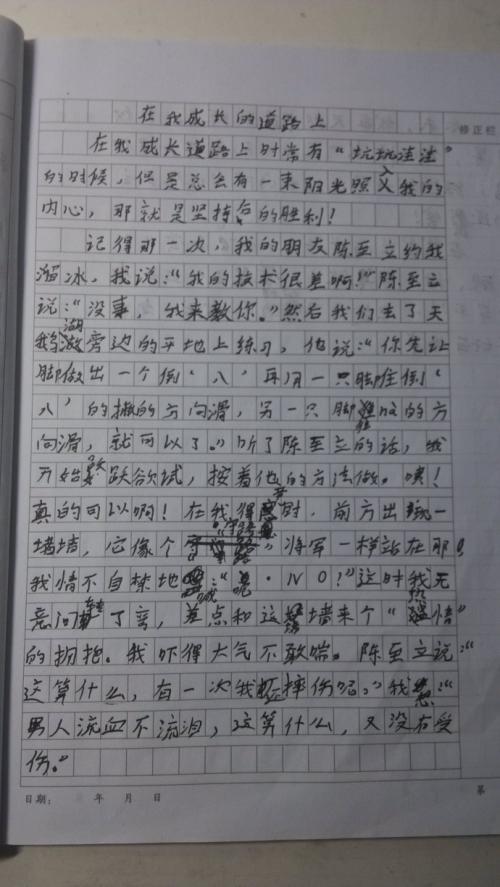 在我成长的道路上
修正栏
在我成长道路上时常有“坑坑洼洼”
的时候，但是总会有一束阳光照入我的
内心，那就是坚持后的胜利！
记得那一次，我的朋友陈至立约我
溜冰，我说：“我的技术很差啊！”陈至立
说：“没事，我来教你。”然后我们去了天
鹅湖旁边的平地上练习，他说：“你先让
脚做出一个倒‘八’再用一只脚往倒‘
八’的撇的方向滑，另一只脚往捺的方
向滑，就可以了。”听了陈至立的话，我
开始跃跃欲试，按着他的方法做。噢！
真的可以啊！在我得意时，前方出现一
墙墙，它像个“　　”将军一样站在那！
我情不自禁地喊：“　·NO！”这时我无
意间转了弯，差点和这堵墙来个“热情”
的拥抱。我吓得大气不敢喘。陈至立说：“
这算什么，有一次我　摔伤呢。”我想：“
男人流血不流泪，这算什么，又没有受
伤。”
日期：　　年　月　日
第